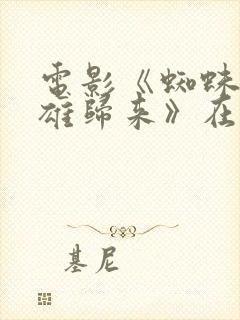 電影《蜘蛛
雄歸来》在
基尼